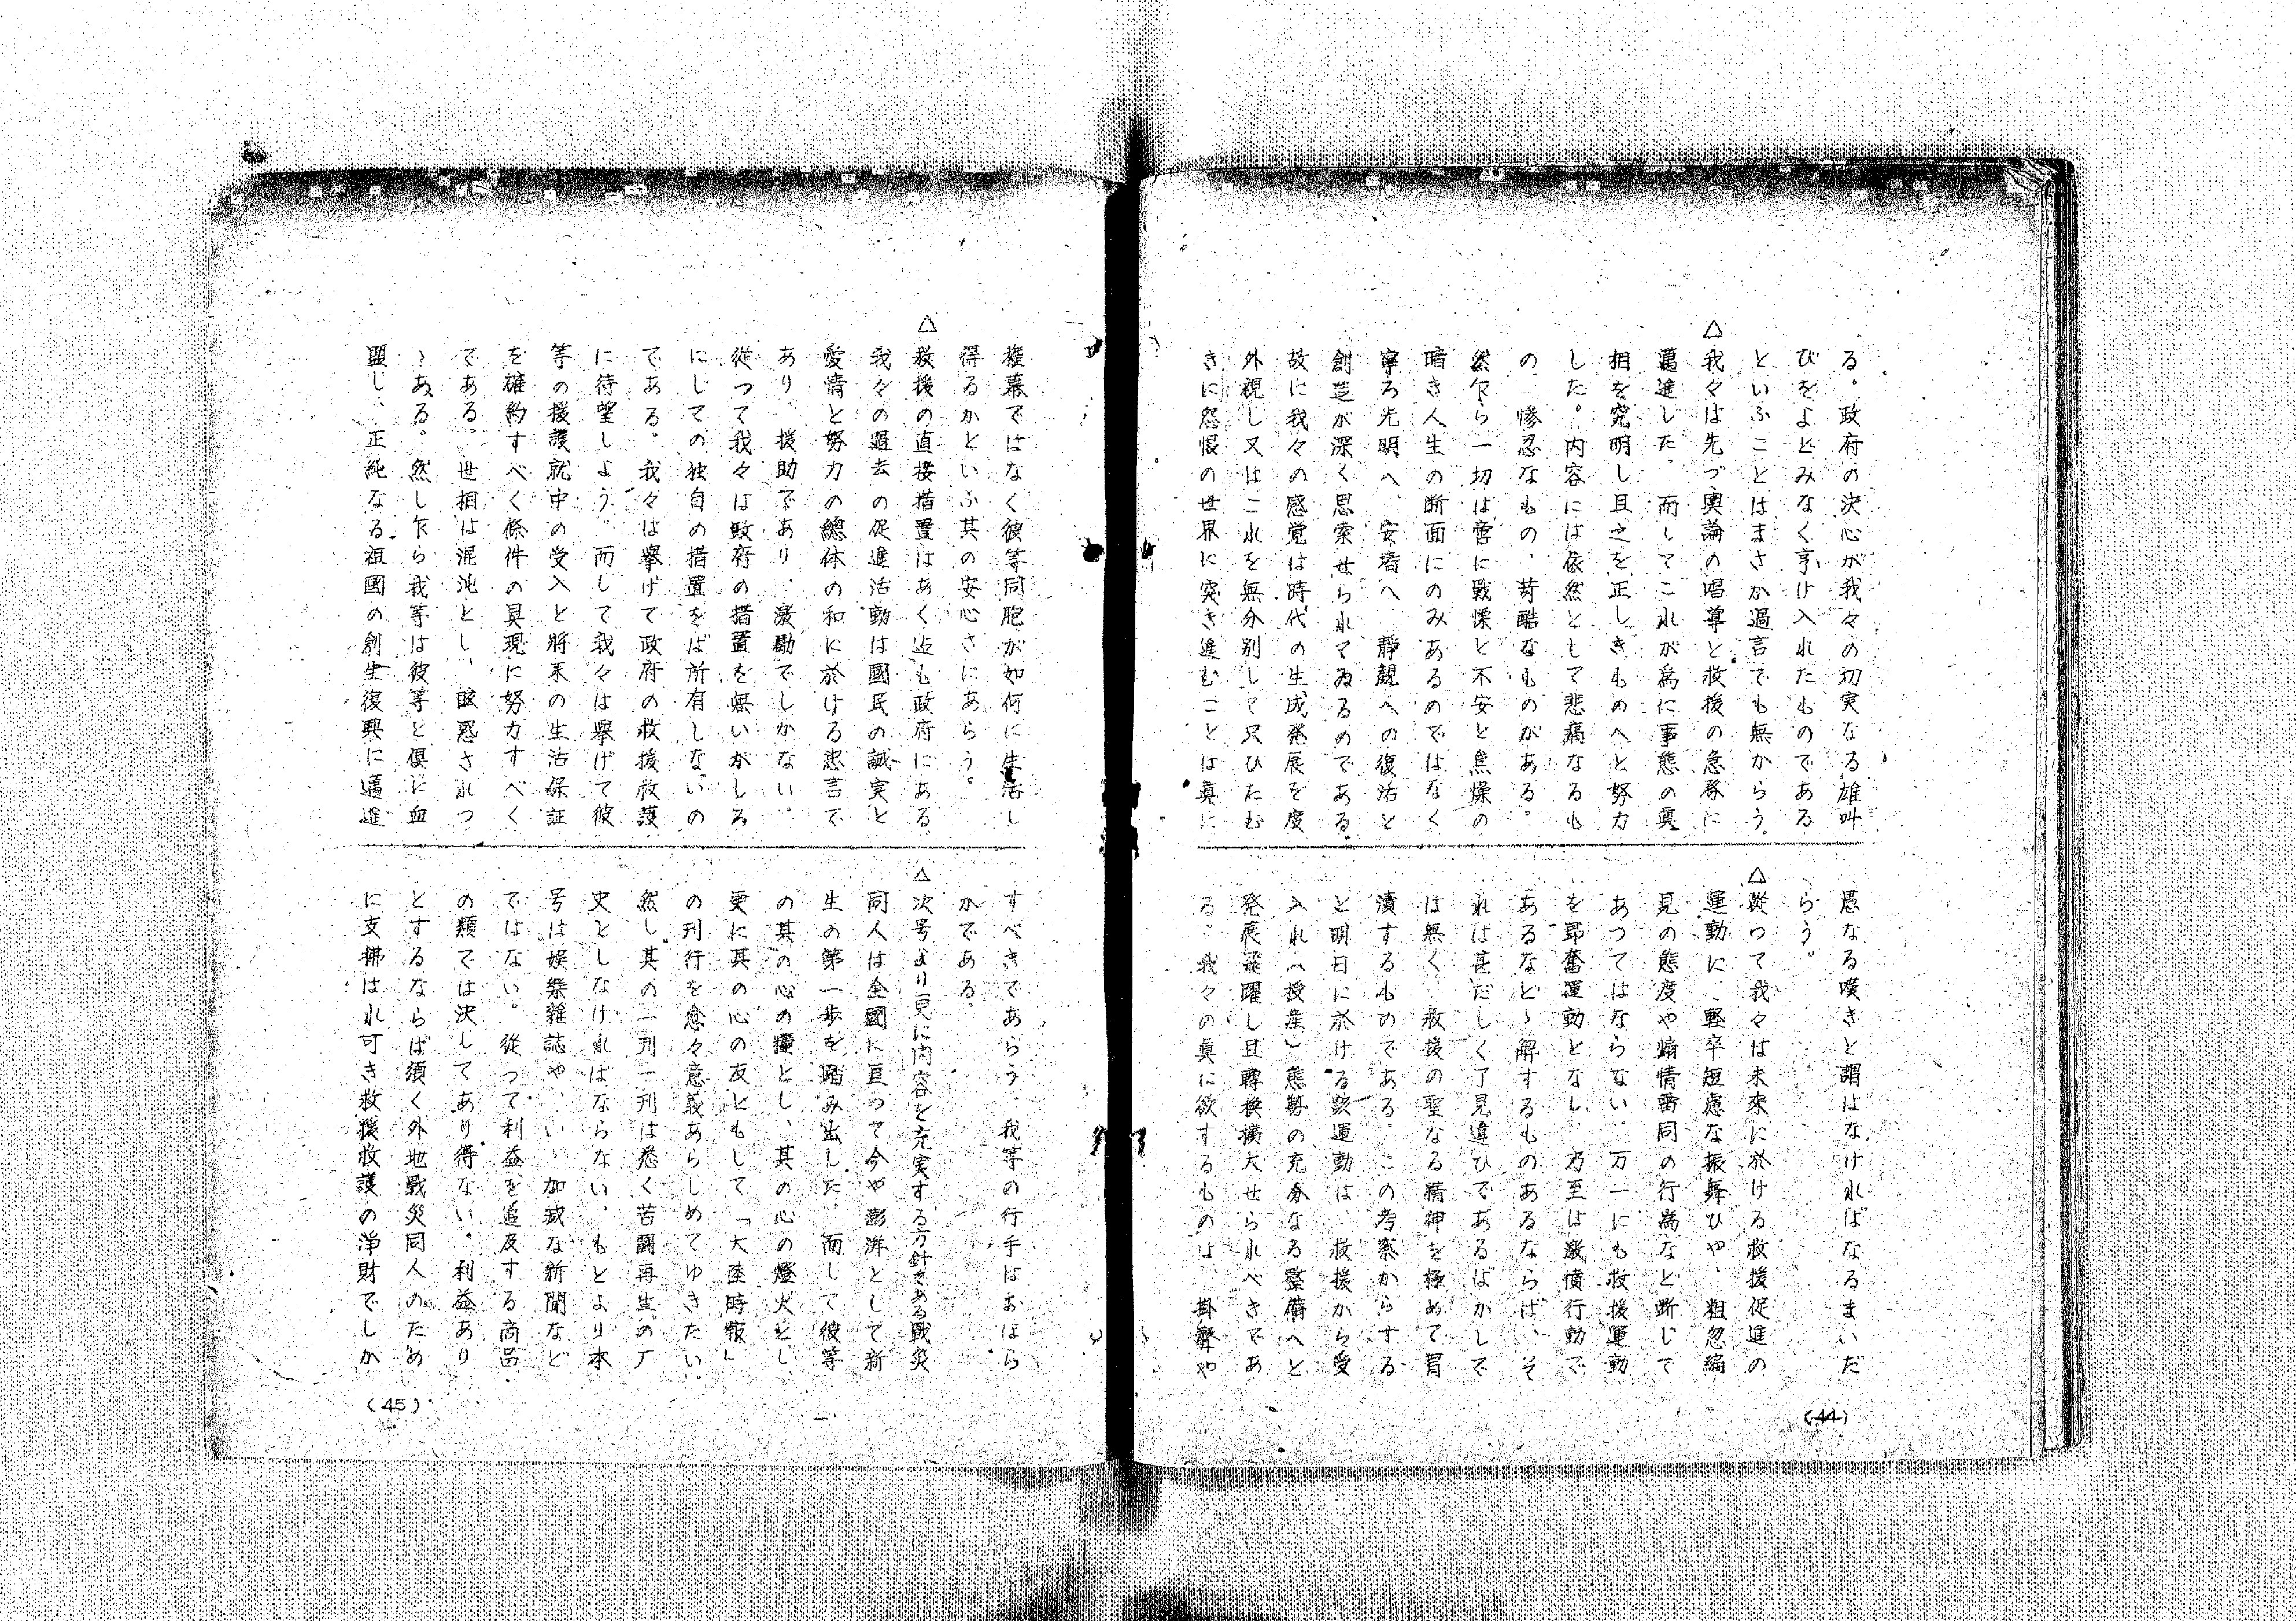 る。政府の決心が我々の切実なる雄叫
びをよどみなく享け入れたものである
といふことはまさか過言でも無からう。
△我々は先づ輿論の唱導と救援の急務に
邁進した。而してこれが為に事態の真
相を究明し且之を正しきものへと努力
した。内容には依然として悲痛なるも
の、惨忍なもの、苛酷なものがある。
然乍ら一切は啻に戰慄と不安と焦燥の
暗き人生の断面にのみあるのではなく
寧ろ光明へ、安着へ、静観への復活と
創造が深く思索せられてゐるのである。
故に我々の感覚は時代の生成発展を度
外視し又はこれを無分別して只ひたむ
きに怨恨の世界に突き進むことは真に
愚なる嘆きと謂はなければなるまいだ
らう。
△從つて我々は未來に於ける救援促進の
運動に、軽卒短慮な振舞ひや、粗忽編
見の態度や煽情雷同の行為など断じて
あつてはならない。万一にも救援運動
を昻奮運動となし、乃至は激憤行動で
あるなどゝ解するものあるならば、そ
れは甚だしく了見違ひであるばかしで
は無く、救援の聖なる精神を極めて冒
瀆するものである。この考察からする
と明日に於ける該運動は、救援から受
入れ(授産)態勢の充分なる整備へと
発展飛躍し且轉換擴大せられべきであ
る。我々の眞に欲するものは、掛聲や
(44)
権幕ではなく彼等同胞が如何に生活し
得るかといふ其の安心さにあらう。
△救援の直接措置はあく迄も政府にある。
我々の過去の促進活動は國民の誠実と
愛情と努力の總体の和に於ける忠言で
あり、援助であり、激勵でしかない。
從つて我々は政府の措置を無いがしろ
にしての独自の措置をば所有しないの
である。我々は擧げて政府の救援救護
に待望しよう。而して我々は擧げて彼
等の援護就中の受入と將來の生活保証
を確約すべく條件の具現に努力すべく
である。世相は混沌とし、眩惑されつ
ゝある。然し乍ら我等は彼等と倶に血
盟し、正純なる祖國の創生復興に邁進
すべきであらう。我等の行手はおほら
かである。
△次号より更に内容を充実する方針である戰災
同人は全國に亘つて今や澎湃として新
生の第一歩を踏み出した。而して彼等
の其の心の糧とし、其の心の燈火とし
更に其の心の友ともして「大陸時報」
の刊行を愈々意義あらしめてゆきたい。
然し其の一刊一刊は悉く苦闘再生の
史としなければならない。もとより本
号は娯樂雑誌や、いゝ加減な新聞など
ではない。從つて利益を追及する商品
の類では決してあり得ない。利益あり
とするならば須く外地戰災同人のため
に支拂はれ可き救援救護の浄財でしか
(45)